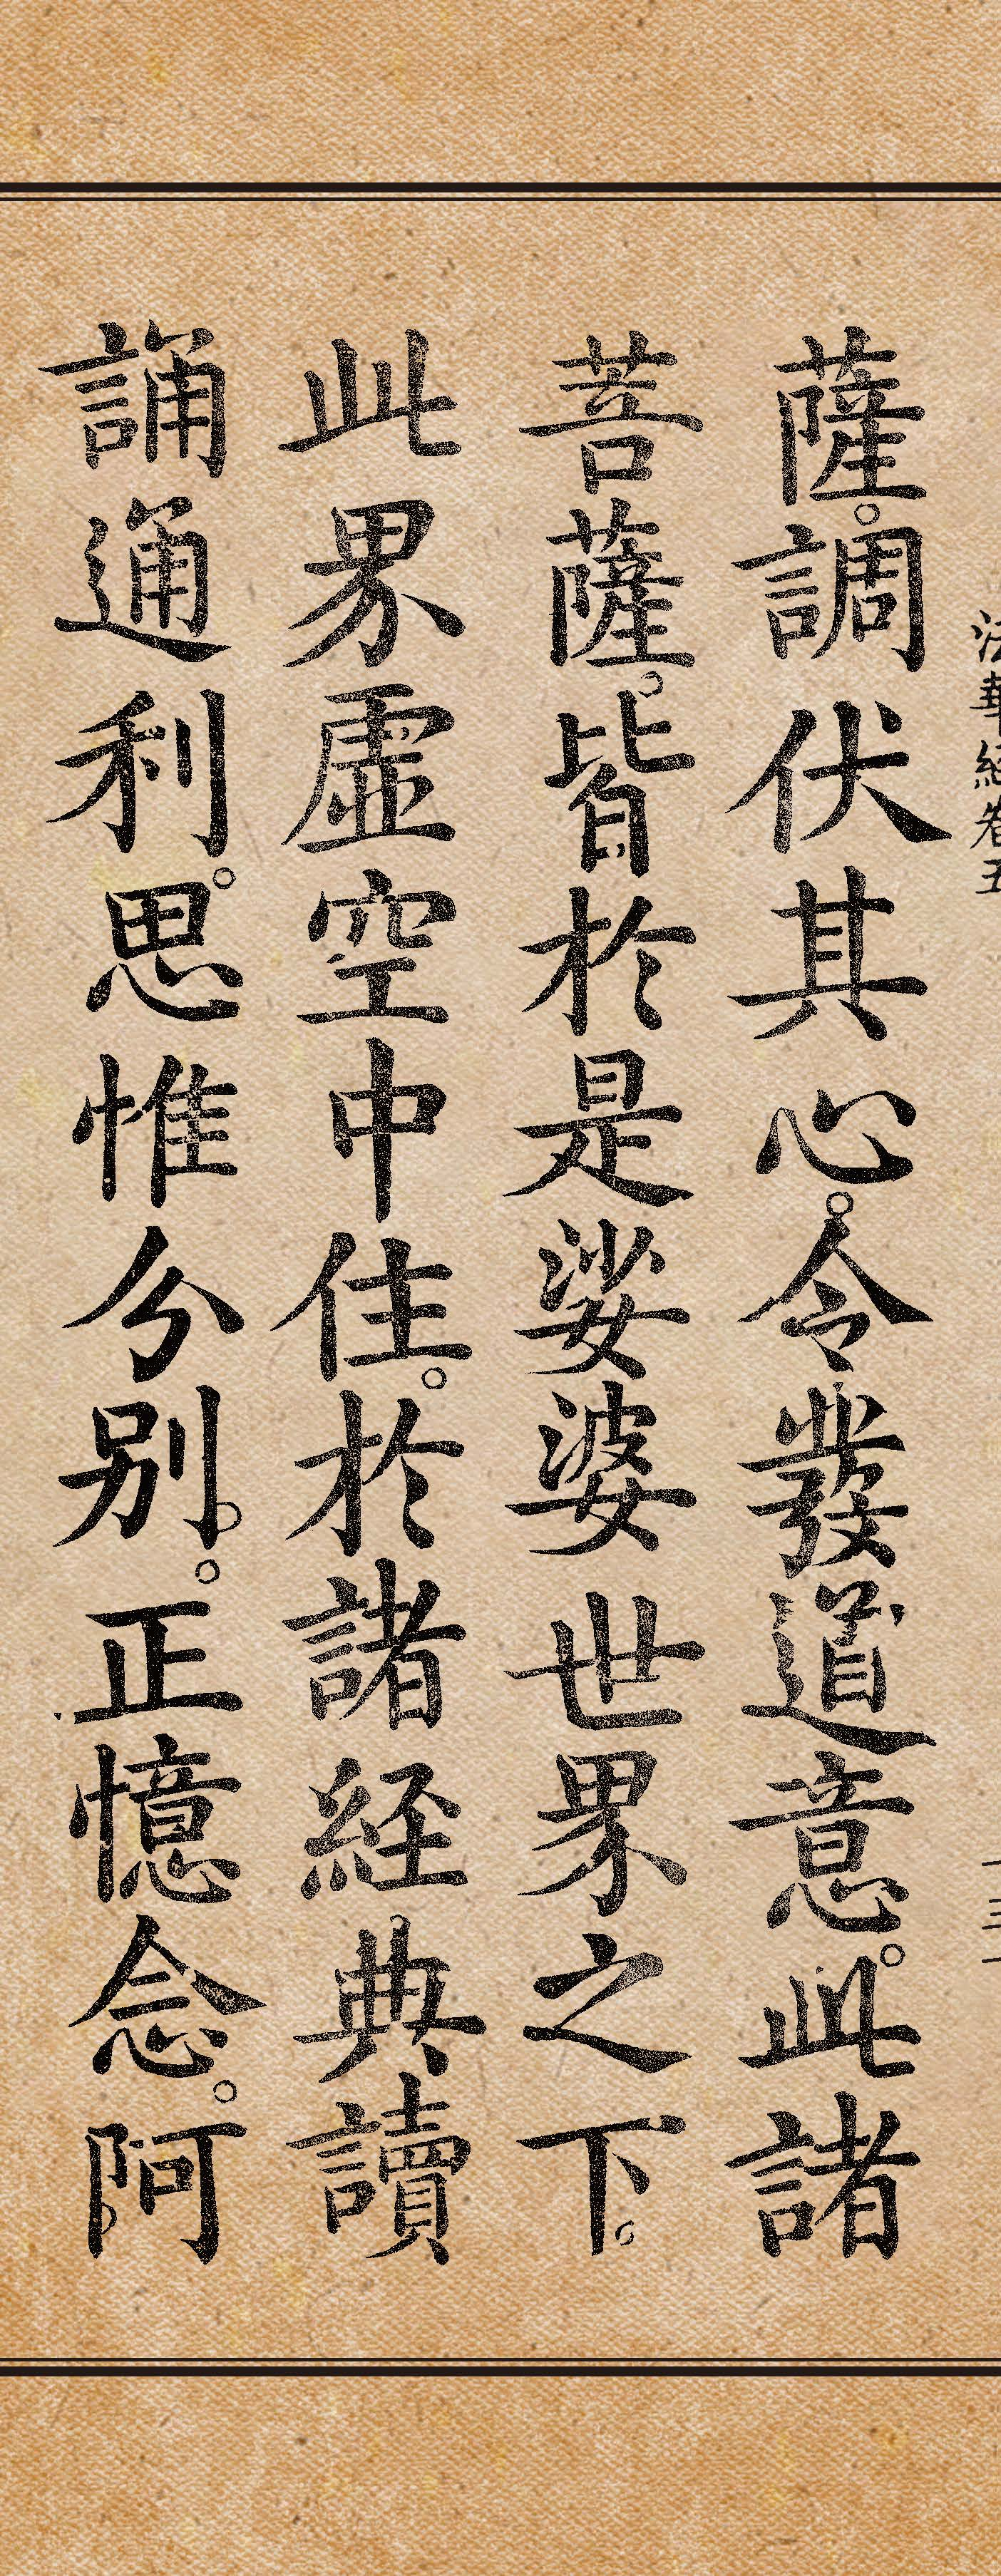 法華經卷五
薩。調伏其心。令發道意。此諸
菩薩。皆於是娑婆世界之下。
此界虛空中住。於諸経典讀
誦通利。思惟分別。。正憶念。阿